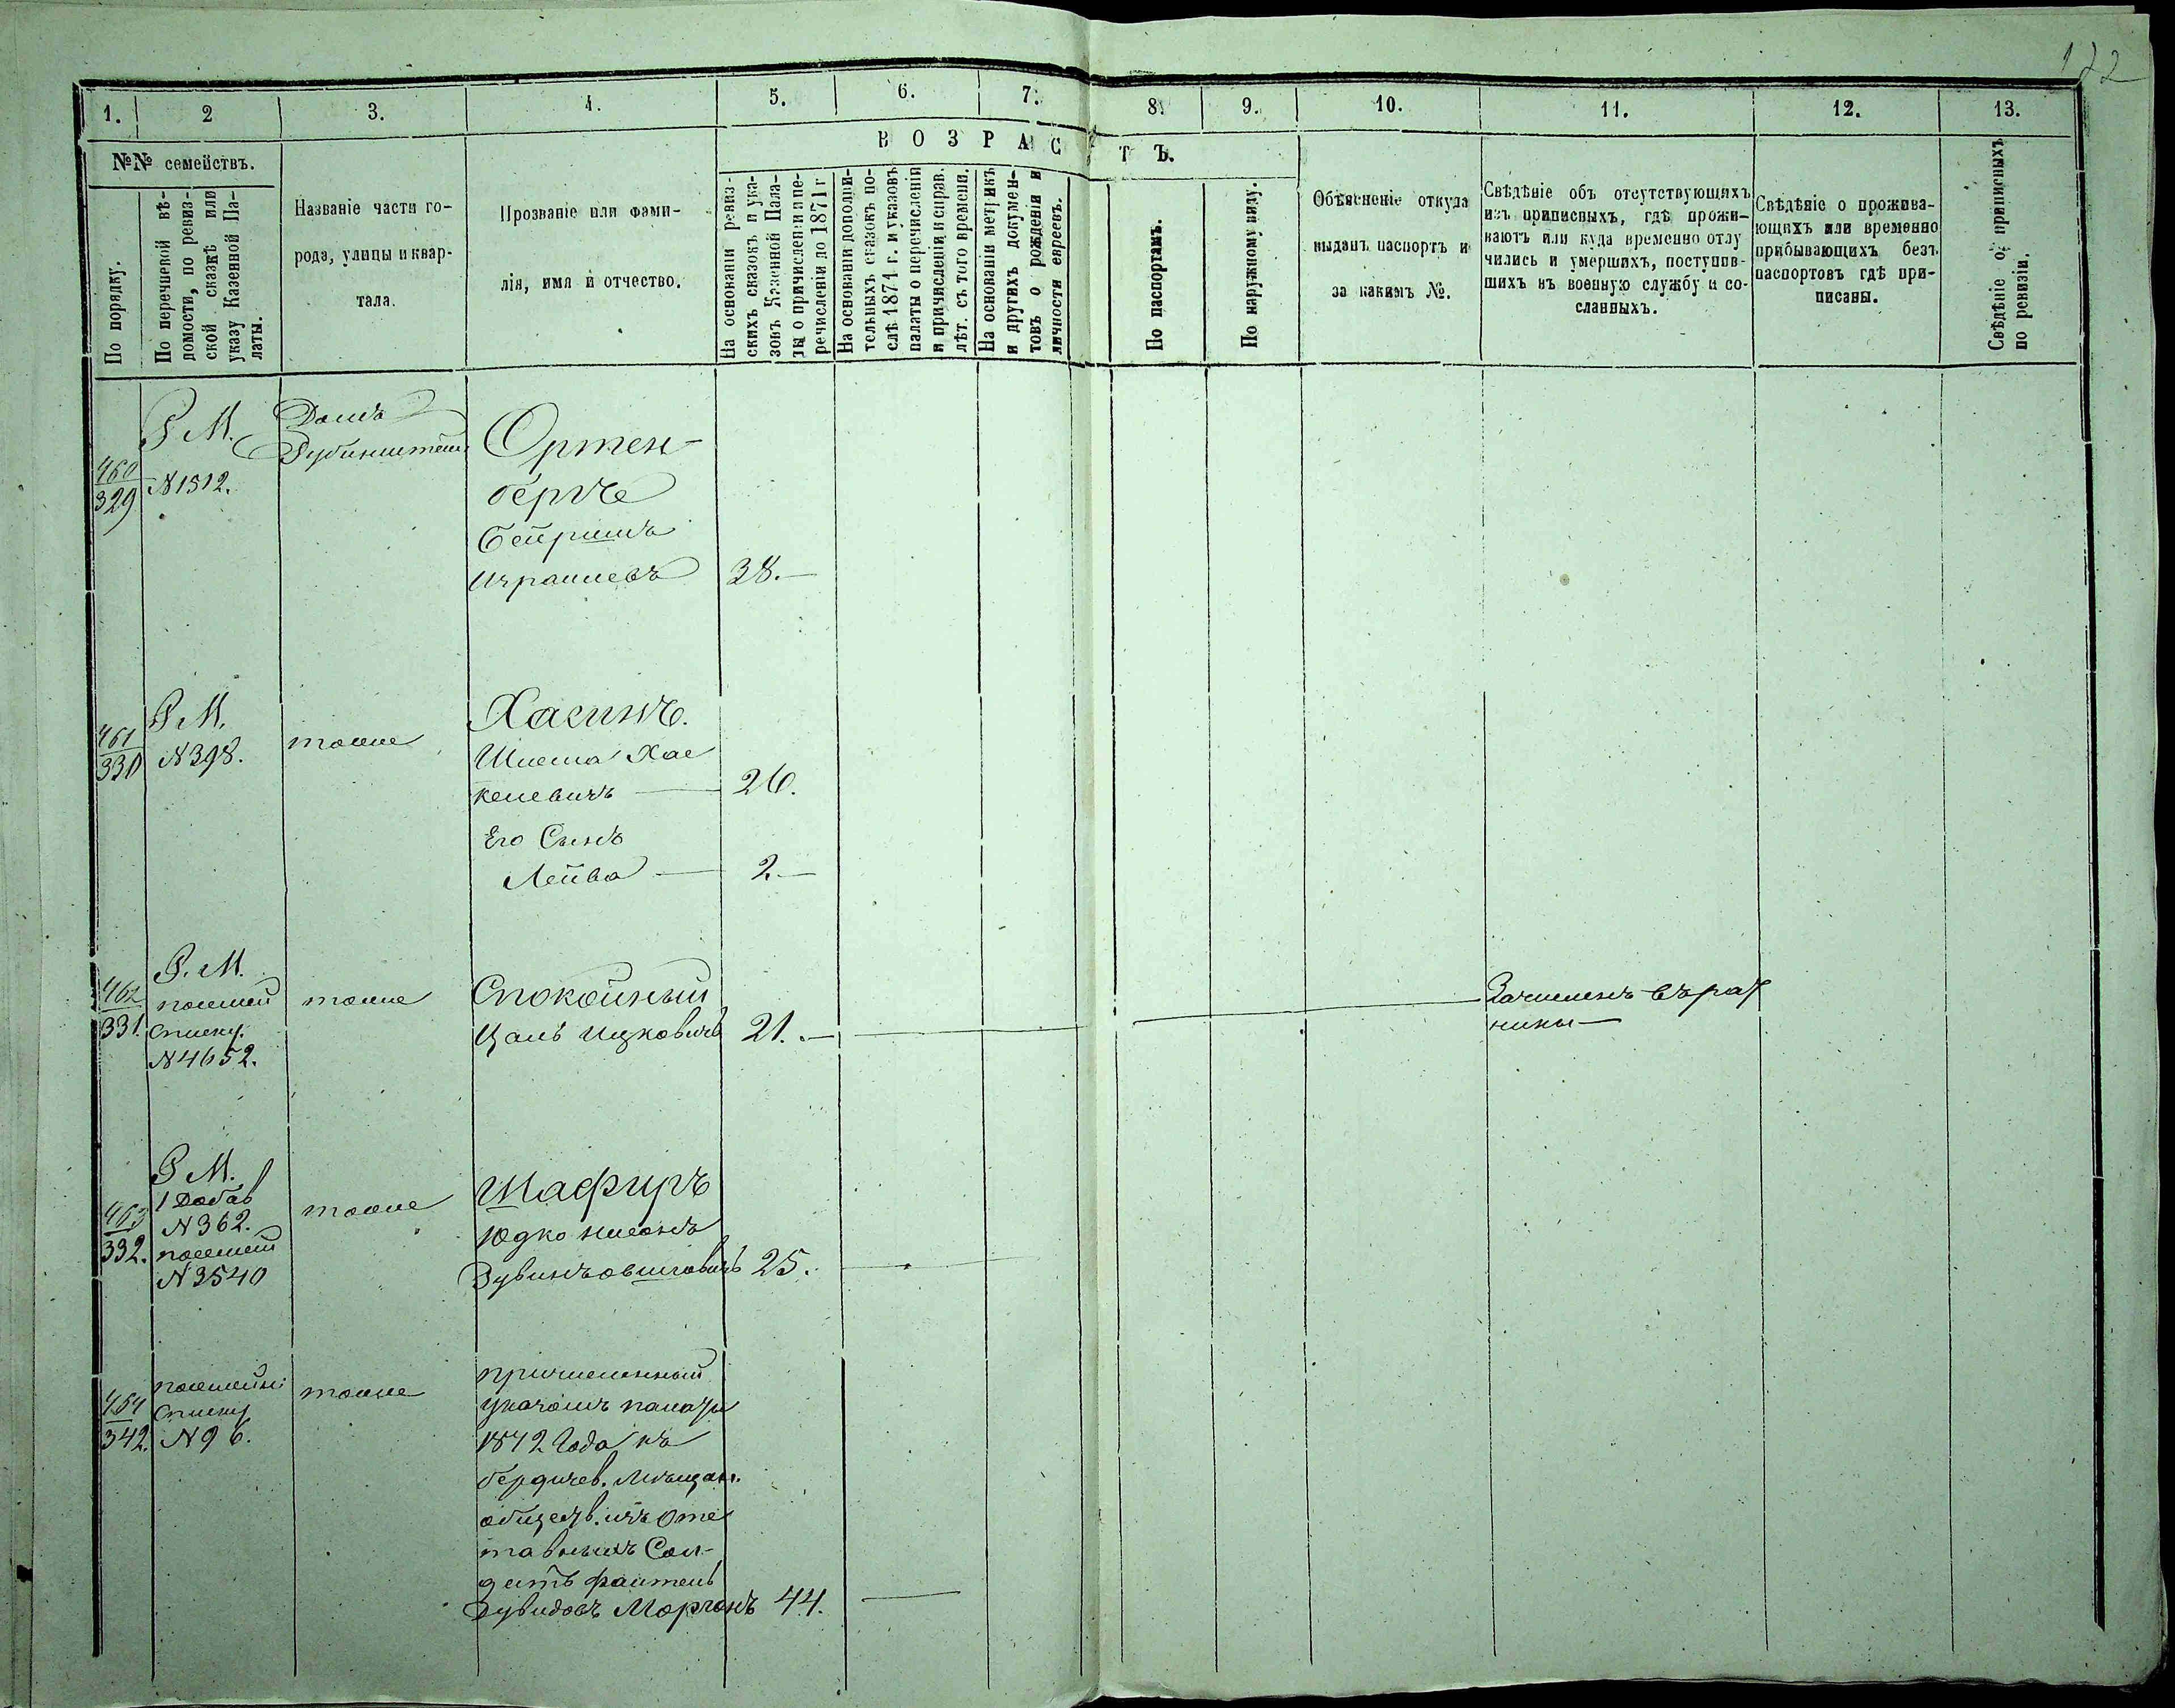 122
1. 2 3. 4. 5. 6. 7. 8. 9. 10. 11. 12. 13.
№№ семействъ.
В О З Р А С Т Ъ.
По порядку.
По перечневой вѣ-
домости, по ревиз-
ской сказкѣ или
указу Казенной Па-
латы.
Названіе части го-
рода, улицы и квар-
тала.
Прозваніе или фами-
лія, имя и отчество.
На основаніи ревиз-
скихъ сказокъ и ука-
зовъ Казенной Пала-
ты о причисленіи и пе-
речисленіи до 1871 г
На основаніи дополни-
тельныхъ сказокъ по-
слѣ 1871 г. и указовъ
палаты о перечисленіи
и причисленіи и справ.
лѣт. съ того времени.
На основаніи метрикъ
и другихъ докумен-
товъ о рожденіи и
личности евреевъ.
По паспортамъ.
По наружному виду.
Объясненіе откуда
выданъ паспортъ и
за какимъ №.
Свѣдѣніе объ отсутствующихъ
изъ приписныхъ, гдѣ прожи-
ваютъ или куда временно отлу
чились и умершихъ, поступив-
шихъ въ военную службу и со-
сланныхъ.
Свѣдѣніе о прожива-
ющихъ или временно
прибывающихъ безъ
паспортовъ гдѣ при-
писаны.
Свѣдѣніе о приписныхъ
по ревизіи.
460
329
Р М.
N 1512.
Домъ
Рубинштейн
Ортен-
берге
Бейришъ
Израилевъ 38.—
461
330
Р М.
N 398.
тоже
Хасинъ.
Шлема Хас
келевичъ — 26.
Его Сынъ
Лейва — 2.—
462
331.
Р. М.
посемей
Списку.
N 4652.
тоже
Спокойный
Цаль Ицковичъ 21.—
Зачисленъ въ рат
ники —
463
332.
Р М.
1 Добав
N 362.
посемей
N 3540
тоже
Шафиръ
Юдко нисонъ
Зувинъ овшіовичъ 25.
464
342.
посемейн
Списку
N 96.
тоже
причисленный
указомъ палаты
1872 Года къ
бердичев. Мѣщан.
обществ. изъ Отс
тавныхъ Сол-
датъ файтель
Дувидовъ Моргонъ 44.